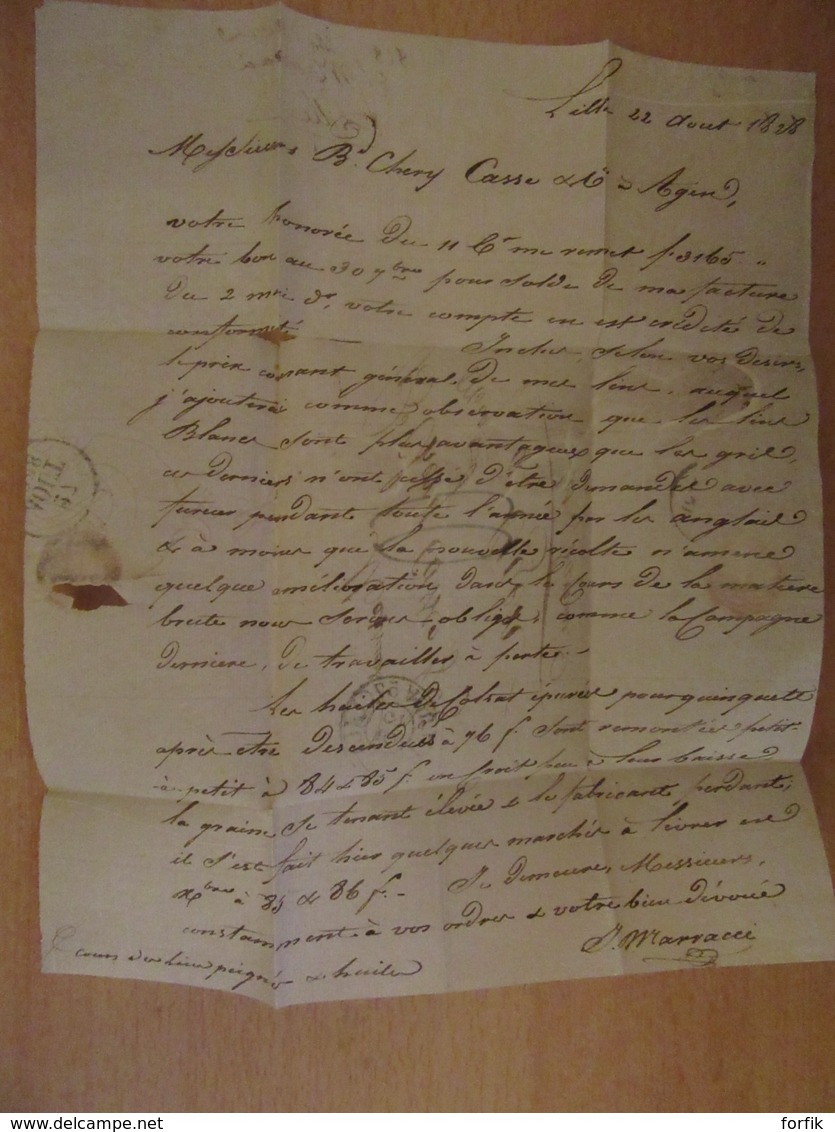 Lille 22 Aout 1828
Messieurs Bd. Chery Casse & Cie à Agen,
votre honorée du 11 Ct me remet f 3165 "
votre bon au 30 9bre pour solde de ma facture
du 2 mai dr, votre compte en est crédité de
conformité Inclus, selon vos desirs,
le prix courant général de mes lins, auquel
j'ajouterai comme observation que les lins
Blancs sont plus avantageux que les gris,
ces derniers n'ont cessé d'être demandés avec
fureur pendant toute l'année par les anglais
& à moins que la nouvelle récolte n'amene
quelque amélioration dans le cours de la matiere
brute nous serons obligés, comme la Campagne
derniere, de travailler à perte.
Les huiles de Colsat épurées pour quinquets
après être descendues à 76 f. sont remontées petit-
à-petit à 84 & 85 f. on croit peu à leur baisse
la graine se tenant élevée & le fabricant perdant;
il s'est fait hier quelques marchés à livrer en
Xbre à 85 & 86 f. - Je demeure, Messieurs,
constamment à vos ordres & votre bien dévoué
J. Marracci
cours des lins peignés & huiles
delcampe.net
forfik